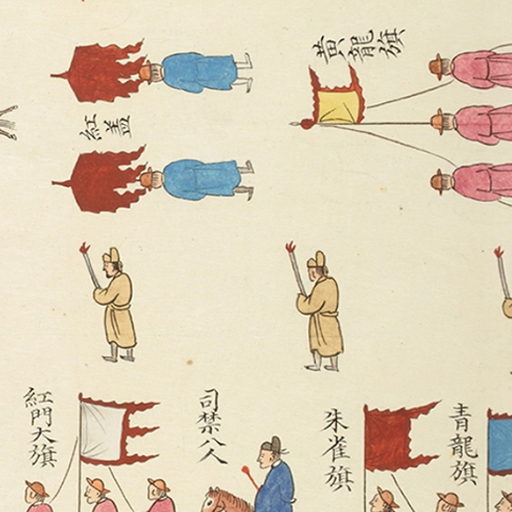 黄龍旗
紅盖
青龍旗
朱雀旗
司禁八人
紅門大旗